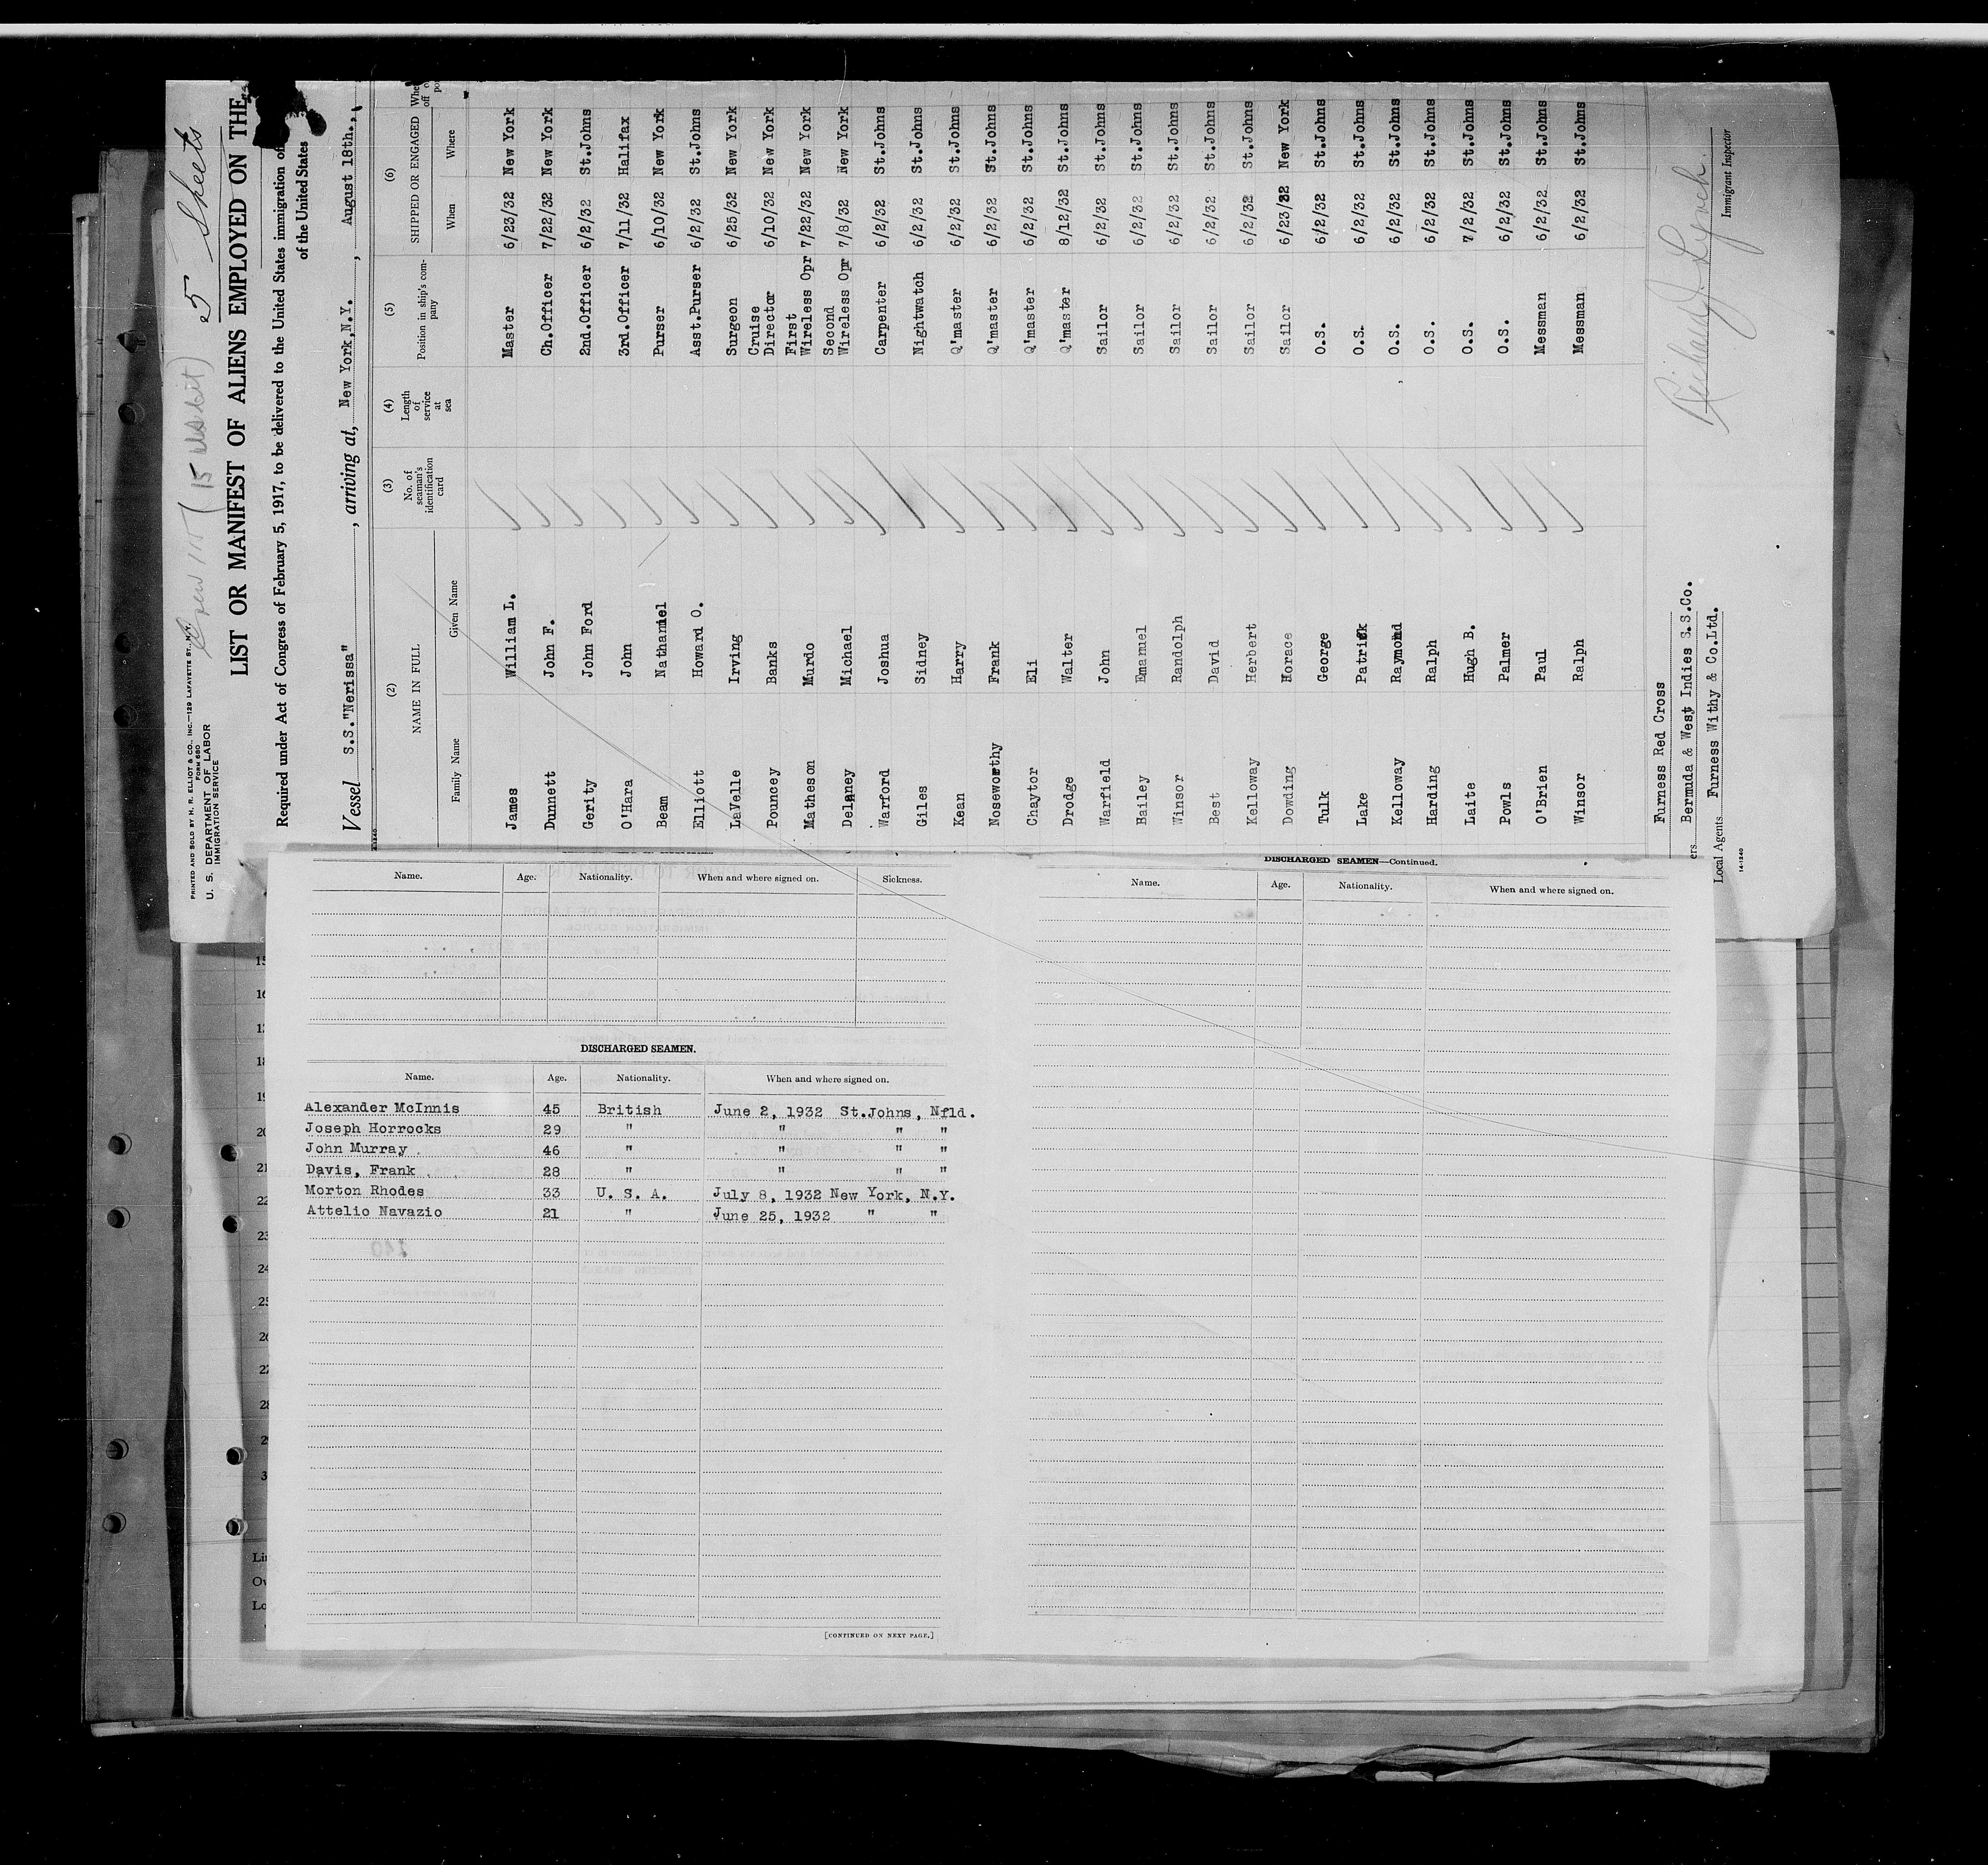 5 Sheets
Crew 115 (15 US Cit)
PRINTED AND SOLD BY H. R. ELLIOT & CO., INC.—129 LAFAYETTE ST., N.Y.
FORM 680
U. S. DEPARTMENT OF LABOR
IMMIGRATION SERVICE
LIST OR MANIFEST OF ALIENS EMPLOYED ON THE
Required under Act of Congress of February 5, 1917, to be delivered to the United States immigration of
of the United States
Vessel S.S."Nerissa", arriving at, New York.N.Y., August 18th.,
(2) (3) (4) (5) (6)
NAME IN FULL No. of seaman's identification card Length of service at sea Position in ship's company SHIPPED OR ENGAGED
Family Name Given Name When Where
James William L. Master 6/23/32 New York
Dunnett John F. Ch.Officer 7/22/32 New York
Gerity John Ford 2nd.Officer 6/2/32 St.Johns
O'Hara John 3rd.Officer 7/11/32 Halifax
Beam Nathaniel Purser 6/10/32 New York
Elliott Howard O. Asst.Purser 6/2/32 St.Johns
LaVelle Irving Surgeon 6/25/32 New York
Pouncey Banks Cruise Director 6/10/32 New York
Matheson Murdo First Wireless Opr 7/22/32 New York
Delaney Michael Second Wireless Opr 7/8/32 New York
Warford Joshua Carpenter 6/2/32 St.Johns
Giles Sidney Nightwatch 6/2/32 St.Johns
Kean Harry Q'master 6/2/32 St.Johns
Noseworthy Frank Q'master 6/2/32 St.Johns
Chaytor Eli Q'master 6/2/32 St.Johns
Drodge Walter Q'master 8/12/32 St.Johns
Warfield John Sailor 6/2/32 St.Johns
Bailey Emanuel Sailor 6/2/32 St.Johns
Winsor Randolph Sailor 6/2/32 St.Johns
Best David Sailor 6/2/32 St.Johns
Kelloway Herbert Sailor 6/2/32 St.Johns
Dowding Horace Sailor 6/23/32 New York
Tulk George O.S. 6/2/32 St.Johns
Lake Patrick O.S. 6/2/32 St.Johns
Kelloway Raymond O.S. 6/2/32 St.Johns
Harding Ralph O.S. 6/2/32 St.Johns
Laite Hugh B. O.S. 7/2/32 St.Johns
Powls Palmer O.S. 6/2/32 St.Johns
O'Brien Paul Messman 6/2/32 St.Johns
Winsor Ralph Messman 6/2/32 St.Johns
Furness Red Cross
ers Bermuda & West Indies S.S.Co.
Local Agents Furness Withy & Co.Ltd.
14-1240
Richard J. Lynch
Immigrant Inspector
Name. Age. Nationality. When and where signed on. Sickness.
DISCHARGED SEAMEN.
Name. Age. Nationality. When and where signed on.
Alexander McInnis 45 British June 2, 1932 St.Johns, Nfld.
Joseph Horrocks 29 " " " "
John Murray 46 " " " "
Davis, Frank 28 " " " "
Morton Rhodes 33 U. S. A. July 8, 1932 New York, N.Y.
Attelio Navazio 21 " June 25, 1932 " "
[CONTINUED ON NEXT PAGE.]
DISCHARGED SEAMEN—Continued.
Name. Age. Nationality. When and where signed on.